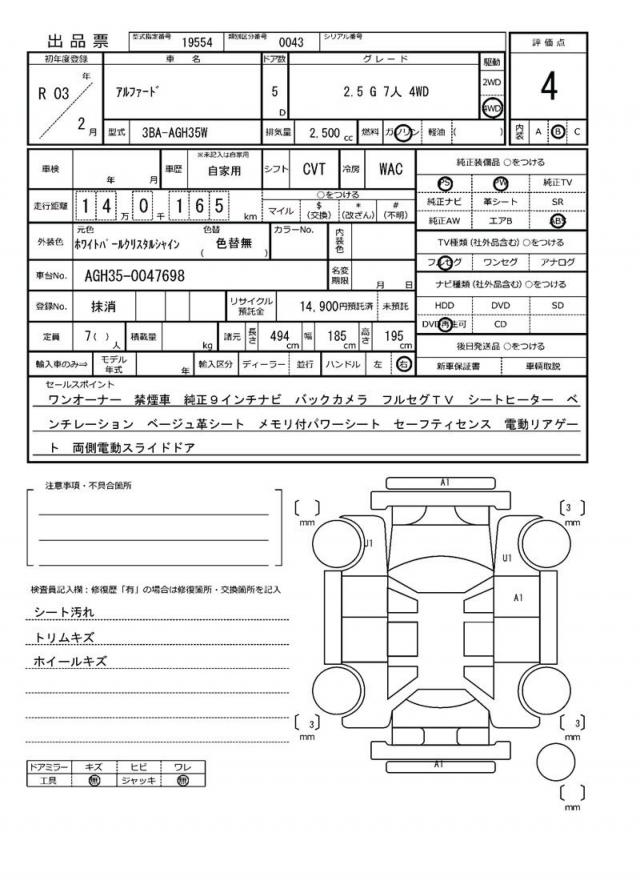 出品票 型式指定番号 19554 類別区分番号 0043 シリアル番号
評価点 4
初年度登録 車名 ドア数 グレード 駆動
R 03 年 2 月 アルファード 5 D 2.5 G 7人 4WD 2WD 4WD
型式 3BA-AGH35W 排気量 2,500 cc 燃料 ガソリン 軽油 ( ) 内装 A B C
車検 年 月 車歴 ※未記入は自家用 自家用 シフト CVT 冷房 WAC
走行距離 1 4 万 0 千 1 6 5 km ○をつける マイル $ (交換) * (改ざん) # (不明)
外装色 元色 ホワイトパールクリスタルシャイン 色替 ( 色替無 ) カラーNo. 内装色
車台No. AGH35-0047698 名変期限 月 日
登録No. 抹消 リサイクル預託金 14,900円預託済 未預託
定員 7( ) 人 積載量 kg 諸元 長さ 494 cm 幅 185 cm 高さ 195 cm
輸入車のみ⇒ モデル年式 年 輸入区分 ディーラー 並行 ハンドル 左 右
純正装備品 ○をつける
PS PW 純正TV
純正ナビ 革シート SR
純正AW エアB ABS
TV種類(社外品含む) ○をつける
フルセグ ワンセグ アナログ
ナビ種類(社外品含む) ○をつける
HDD DVD SD
DVD再生可 CD
後日発送品 ○をつける
新車保証書 車輌取説
セールスポイント
ワンオーナー 禁煙車 純正9インチナビ バックカメラ フルセグTV シートヒーター ベ
ンチレーション ベージュ革シート メモリ付パワーシート セーフティセンス 電動リアゲー
ト 両側電動スライドドア
注意事項・不具合箇所
検査員記入欄：修復歴「有」の場合は修復箇所・交換箇所を記入
シート汚れ
トリムキズ
ホイールキズ
ドアミラー キズ ヒビ ワレ
工具 無 ジャッキ 無
A1
[ ] mm [ 3 ] mm
U1 U1
A1
[ 3 ] mm [ 3 ] mm
A1
[ ] mm